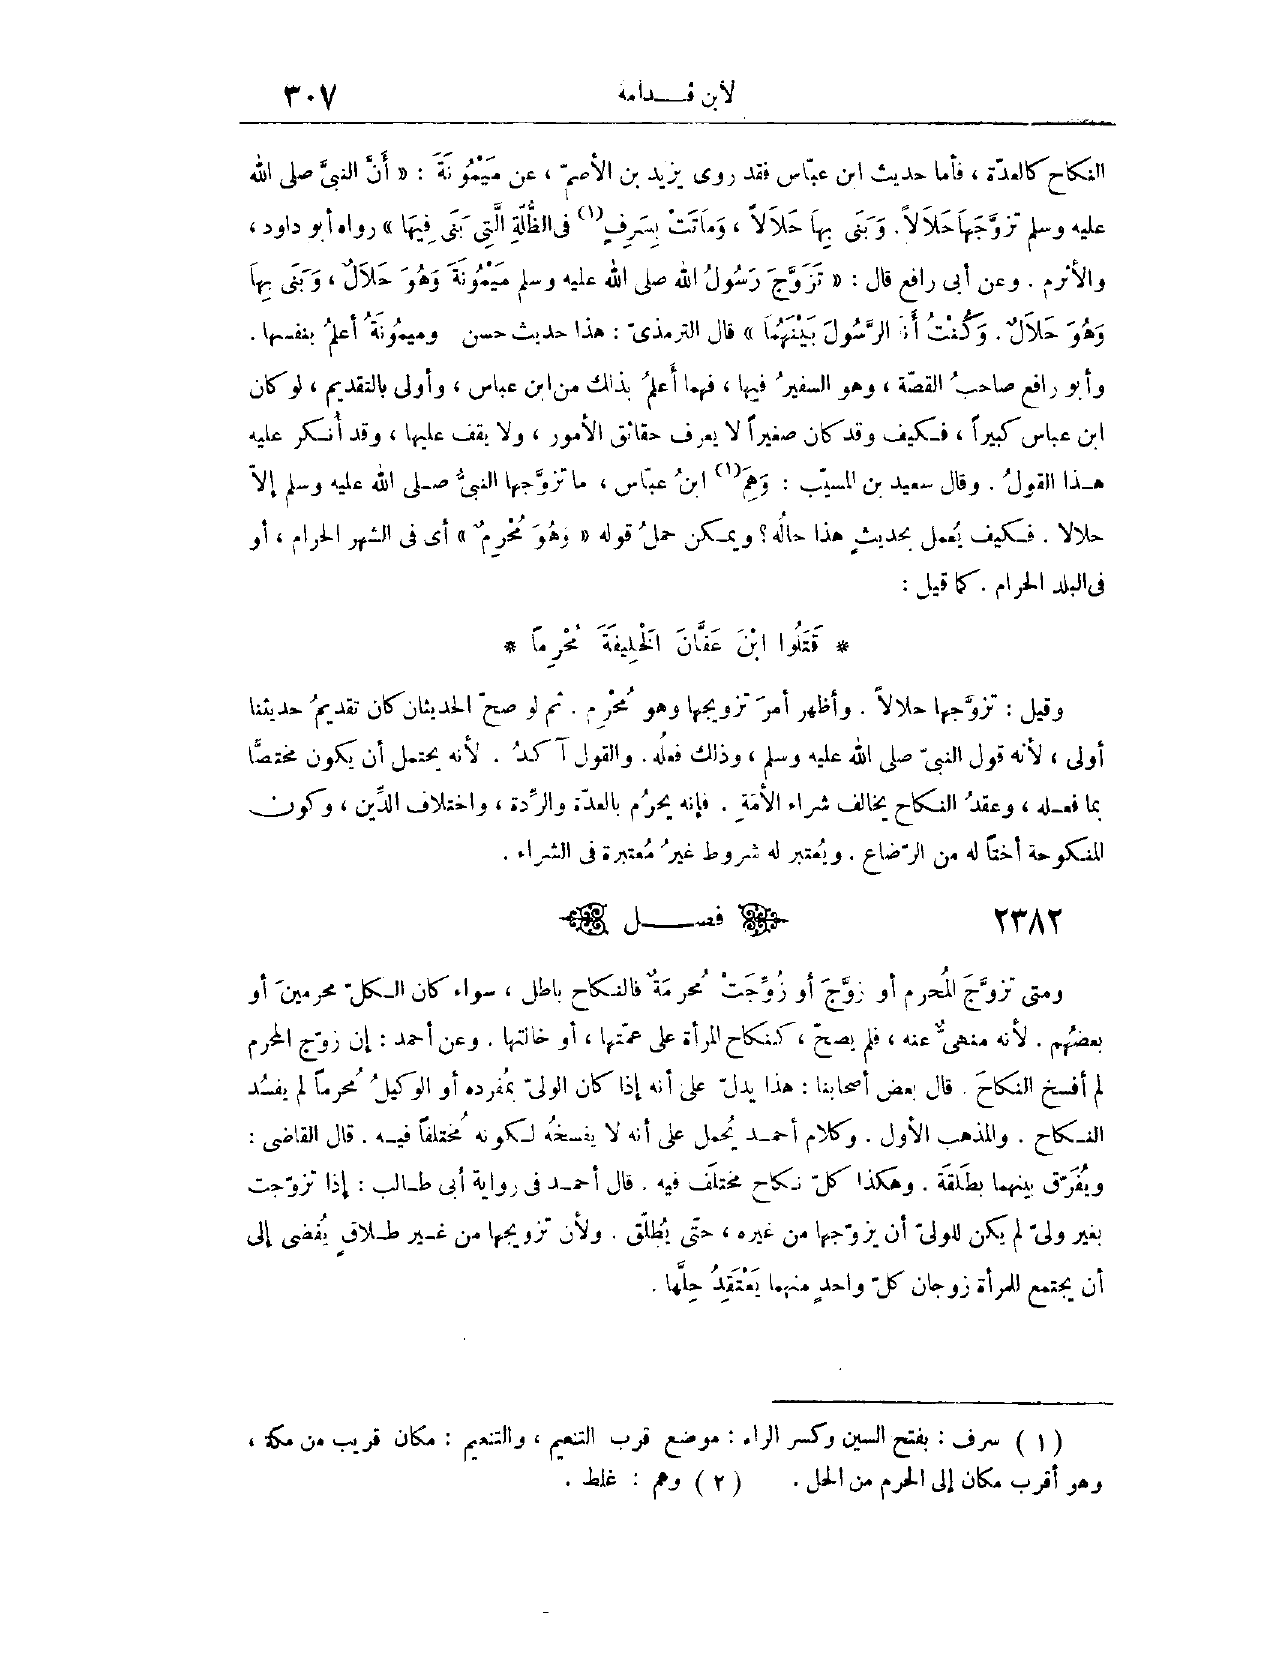 لأبن قـــدامة ٣٠٧
النكاح كالعدّة ، فأما حديث ابن عبّاس فقد روى يزيد بن الأصمّ ، عن مَيْمُونَةَ : « أَنَّ النبىَّ صلى الله
عليه وسلم تزوَّجَهَا حَلَالاً. وَبَنَى بِهَا حَلَالاً ، وَمَاتَتْ بِسَرِفٍ(١) فى الظُّلَّةِ الَّتِى بَنَى فِيهَا » رواه أبو داود ،
والأثرم . وعن أبى رافع قال : « تَزَوَّجَ رَسُولُ الله صلى الله عليه وسلم مَيْمُونَةَ وَهُوَ حَلَالٌ ، وَبَنَى بِهَا
وَهُوَ حَلَالٌ. وَكُنْتُ أَنَا الرَّسُولَ بَيْنَهُمَا » قال الترمذىّ : هذا حديث حسن وميمُونَةُ أعلمُ بنفسها .
وأبو رافع صاحبُ القصّة ، وهو السفيرُ فيها ، فهما أعلمُ بذلك من ابن عباس ، وأولى بالتقديم ، لو كان
ابن عباس كبيراً ، فـكيف وقد كان صغيراً لا يعرف حقائق الأمور ، ولا يقف عليها ، وقد أُنـكر عليه
هـذا القولُ . وقال سعيد بن المسيّب : وَهِمَ(١) ابنُ عبّاس ، ما تزوَّجها النبىُّ صـلى الله عليه وسلم إلاّ
حلالا . فـكيف يُعمل بحديثٍ هذا حالُه؟ ويمـكن حملُ قوله « وَهُوَ مُحْرِمٌ » أى فى الشهر الحرام ، أو
فى البلد الحرام . كما قيل :
* قَتَلُوا ابْنَ عَفَّانَ الخَلِيفَةَ مُحْرِماً *
وقيل : تزوَّجها حلالاً . وأظهر أمرَ تزويجها وهو مُحْرِم . ثم لو صحّ الحديثان كان تقديمُ حديثنا
أولى ، لأنه قول النبىّ صلى الله عليه وسلم ، وذلك فعلُه. والقول آكدُ . لأنه يحتمل أن يكون مختصًّا
بما فعـله ، وعقدُ النكاح يخالف شراء الأمَةِ . فإنه يحرُم بالعدّة والرِّدة ، واختلاف الدِّين ، وكون
المنكوحة أختاً له من الرّضاع . ويُعتبر له شروط غيرُ مُعتبرة فى الشراء .
٢٣٨٢ فصــــل
ومتى تزوَّجَ المُحرم أو زوَّجَ أو زُوِّجَتْ مُحرمَةٌ فالنكاح باطل ، سواء كان الـكلّ محرمينَ أو
بعضُهم . لأنه منهىٌّ عنه ، فلم يصحّ ، كنكاح المرأة على عمّتها ، أو خالتها . وعن أحمد : إن زوّج المحرم
لم أفسخ النكاحَ . قال بعض أصحابنا : هذا يدلّ على أنه إذا كان الولىّ بمُفرده أو الوكيلُ مُحرماً لم يفسُد
النـكاح . والمذهب الأول . وكلام أحمـد يُحمل على أنه لا يفسخُه لـكونه مُختلفاً فيـه . قال القاضى :
ويُفَرّق بينهما بطَلَقَة . وهكذا كلّ نـكاح مختلَف فيه . قال أحمـد فى رواية أبى طـالب : إذا تزوّجت
بغير ولىّ لم يكن للولىّ أن يزوّجها من غيره ، حتّى يُطلّق . ولأن تزويجها من غـير طـلاقٍ يُفضى إلى
أن يجتمع للمرأة زوجان كلّ واحدٍ منهما يَعْتَقِدُ حِلَّها .
( ١ ) سرف : بفتح السين وكسر الراء : موضع قرب التنعيم ، والتنعيم : مكان قريب من مكة ،
وهو أقرب مكان إلى الحرم من الحل . ( ٢ ) وهم : غلط .